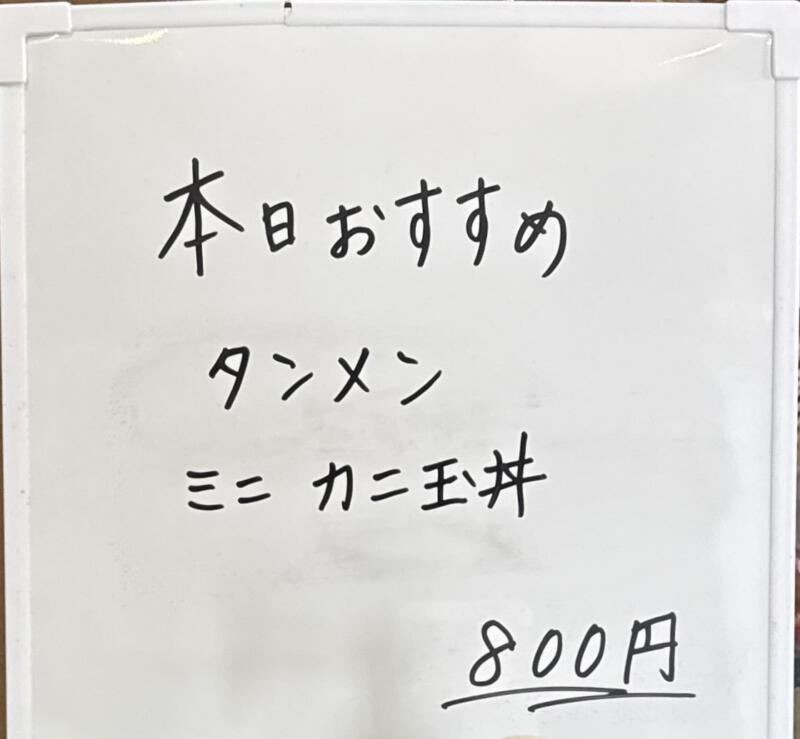 本日おすすめ
タンメン
ミニ カニ玉丼
800円